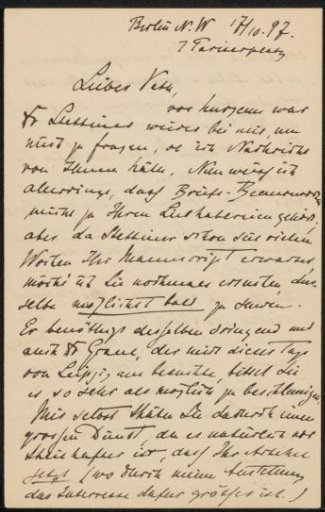 Berlin N.W 17/10.97.
7 Pariserplatz
Lieber Veth,
vor kurzem war
Dr Stettiner wieder bei mir, um
mich zu fragen, ob ich Nachricht
von Ihnen hätte. Nun weiss ich
allerdings, dass Briefe-Beantworten
nicht zu Ihren Liebhabereien gehört,
aber da Stettiner schon seit vielen
Wochen Ihr Manuscript erwartet,
möchte ich Sie nochmals ersuchen, das-
selbe möglichst bald zu senden.
Er benöthigt desselben dringend und
auch Dr Graul, der mich dieser Tage
von Leipzig aus besuchte, bittet Sie
es so sehr als möglich zu beschleunigen.
Mir selbst thäten Sie dadurch einen
grossen Dienst, da es natürlich
ist, dass Ihr Artikel
jetzt (wo durch meine Ausstellung
das Interesse dafür grösser ist.)